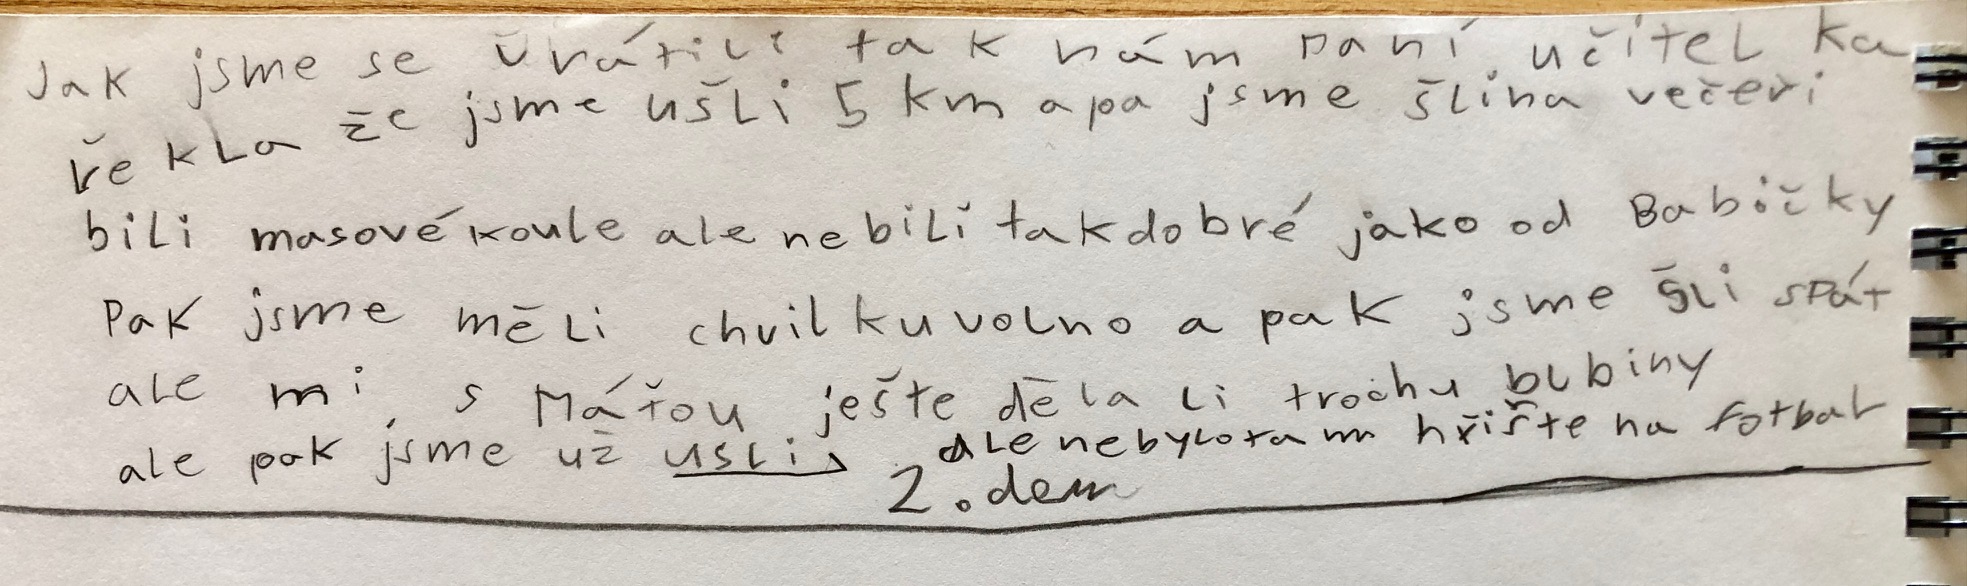 Jak jsme se vrátili tak nám paní učitelka
řekla že jsme ušli 5 km a pa jsme šli na večeři
bili masové koule ale nebili tak dobré jako od Babičky
Pak jsme měli chvilku volno a pak jsme šli spát
ale mi s Máťou ješte děla li trochu blbiny
ale pak jsme už usli, ale nebylo tam hřište na fotbal
2. den